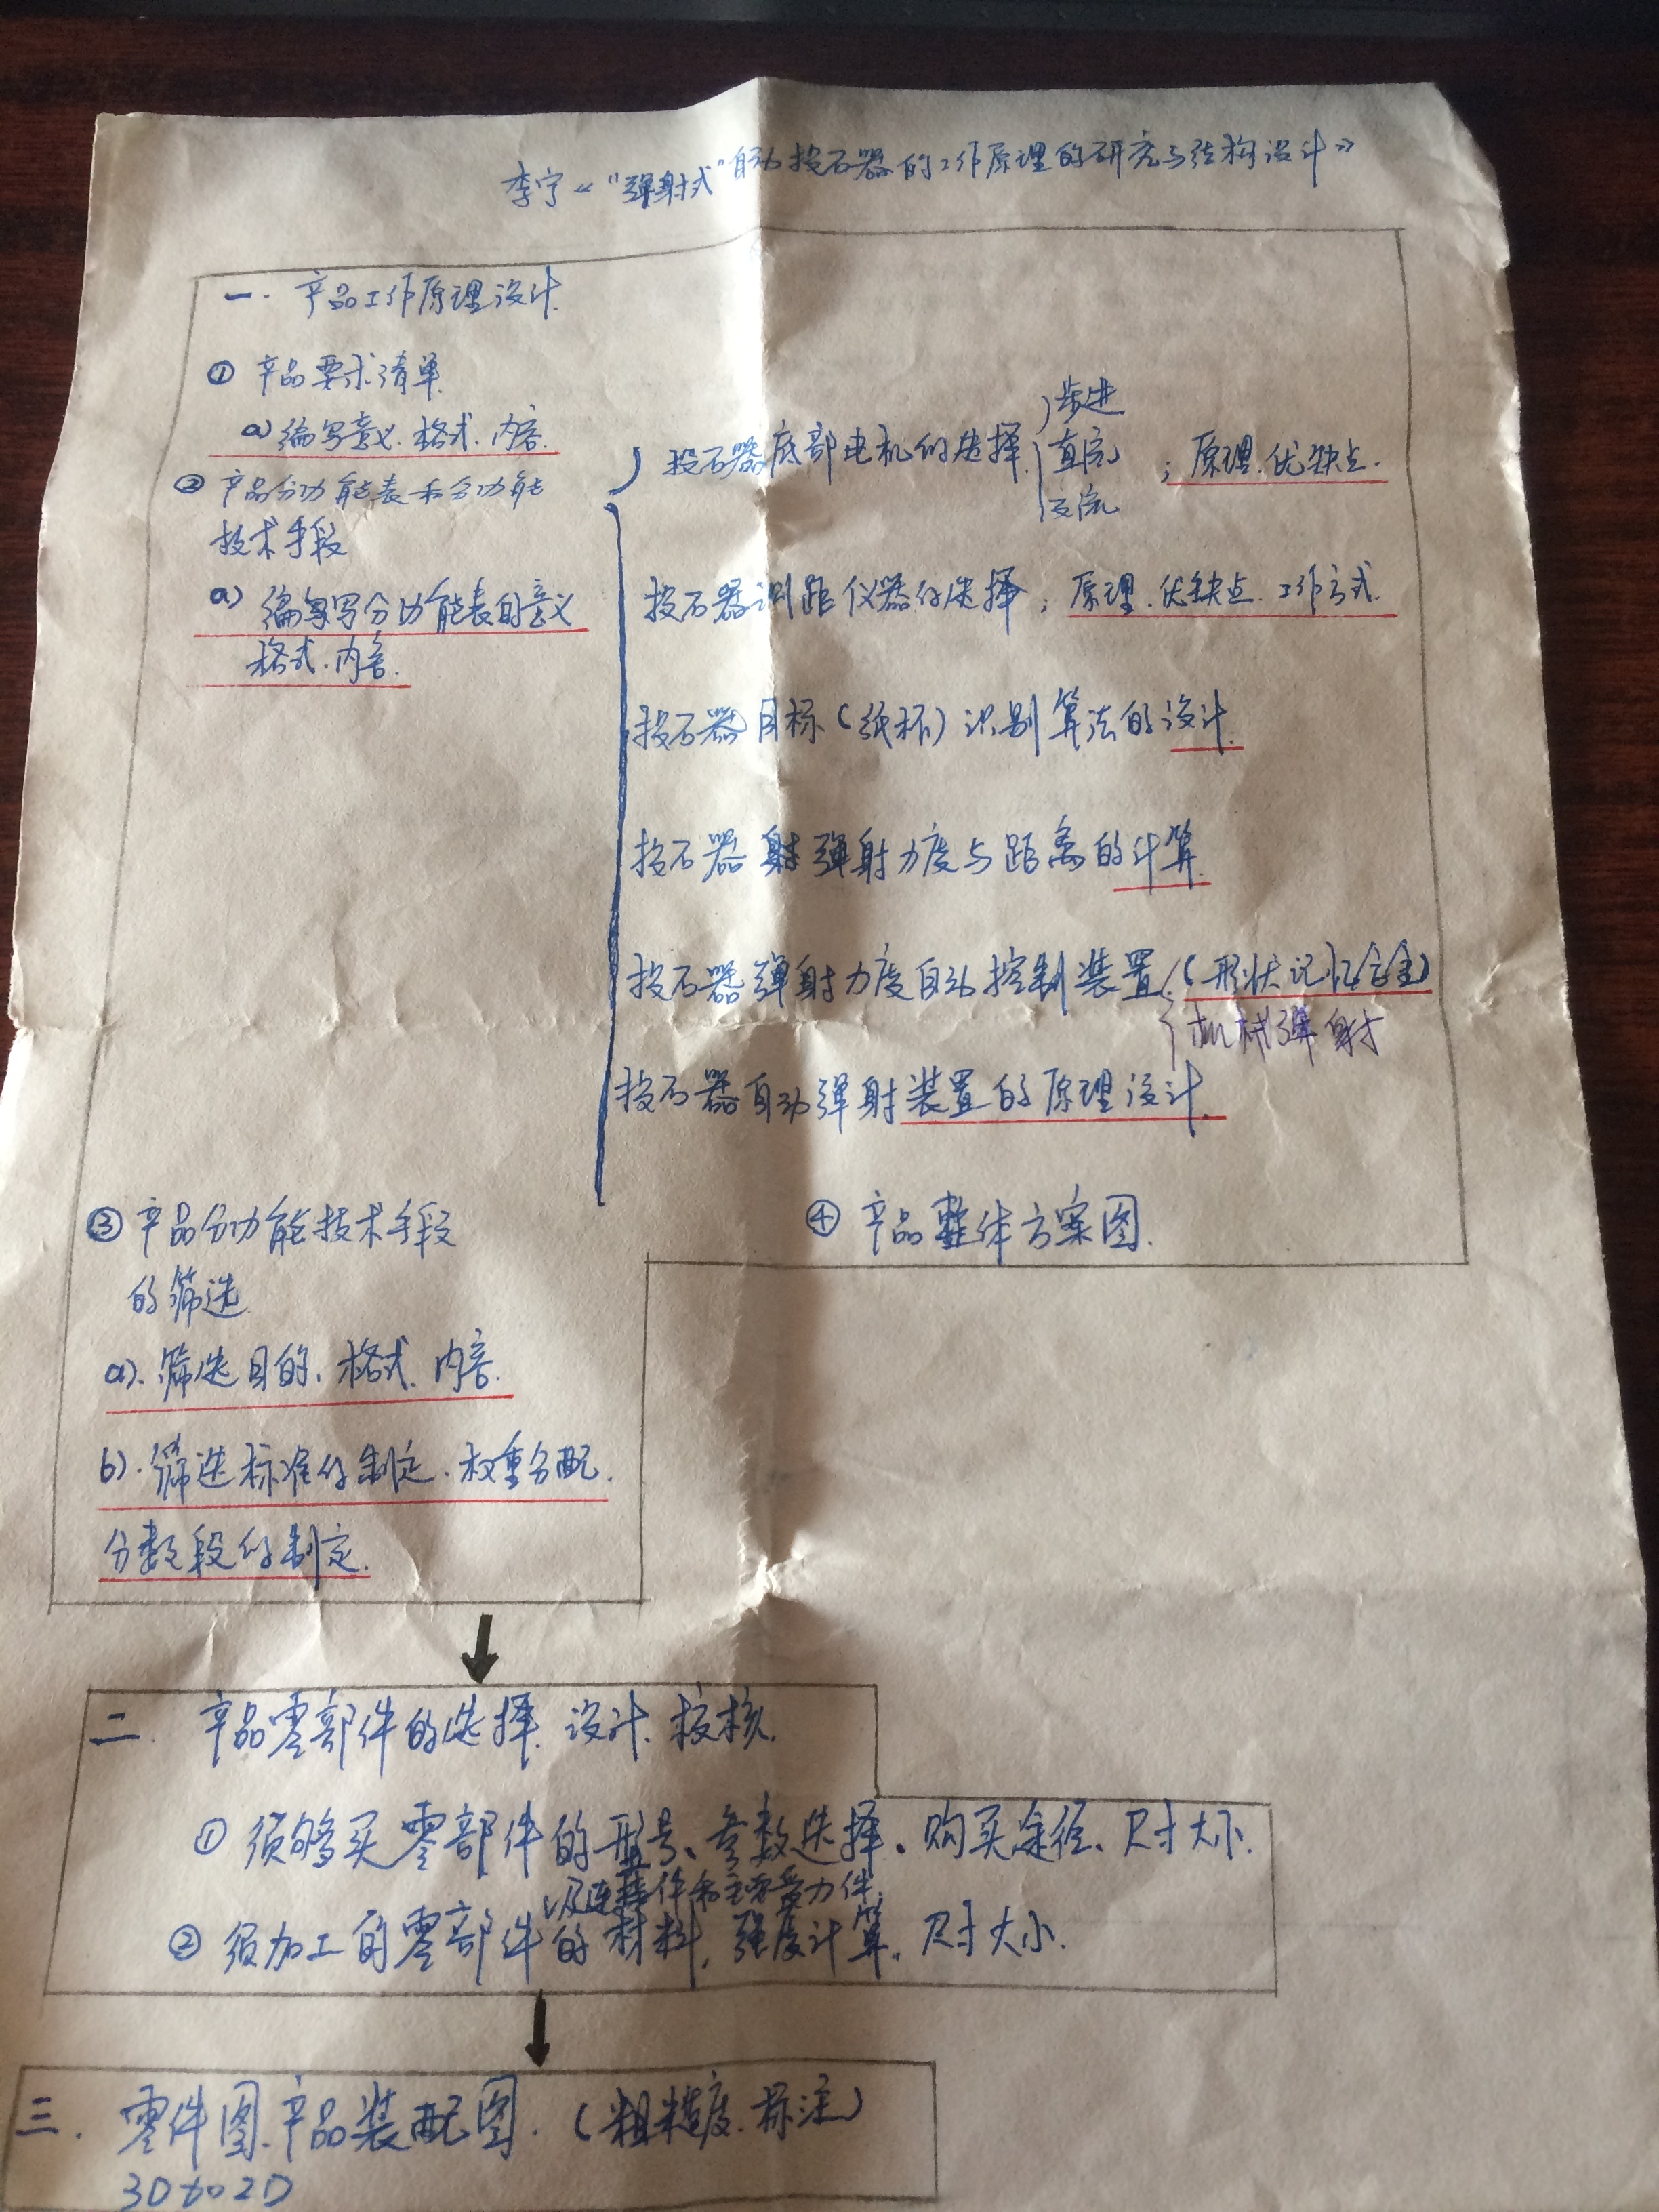 李宁《"弹射式"自动投石器的工作原理的研究与结构设计》
一. 产品工作原理设计.
① 产品要求清单.
a) 编写意义. 格式. 内容.
② 产品分功能表和分功能
技术手段
a) 编写分功能表的意义
格式. 内容.
投石器底部电机的选择
步进
直流
交流
; 原理. 优缺点.
投石器测距仪器的选择; 原理. 优缺点. 工作方式.
投石器目标(纸杯)识别算法的设计.
投石器弹射力度与距离的计算.
投石器弹射力度自动控制装置(形状记忆合金)
机械弹射
投石器自动弹射装置的原理设计.
③ 产品分功能技术手段
的筛选
a). 筛选目的. 格式. 内容.
b). 筛选标准的制定. 权重分配.
分数段的制定.
④ 产品整体方案图.
二. 产品零部件的选择. 设计. 校核.
① 须够买零部件的型号、参数选择. 购买途径、尺寸大小.
以及连接件和主要受力件.
② 须加工的零部件的材料, 强度计算. 尺寸大小.
三. 零件图. 产品装配图. (粗糙度. 标注)
3D to 2D